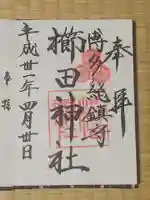 奉拝
博多総鎮守
櫛田神社
平成卅一年四月廿日